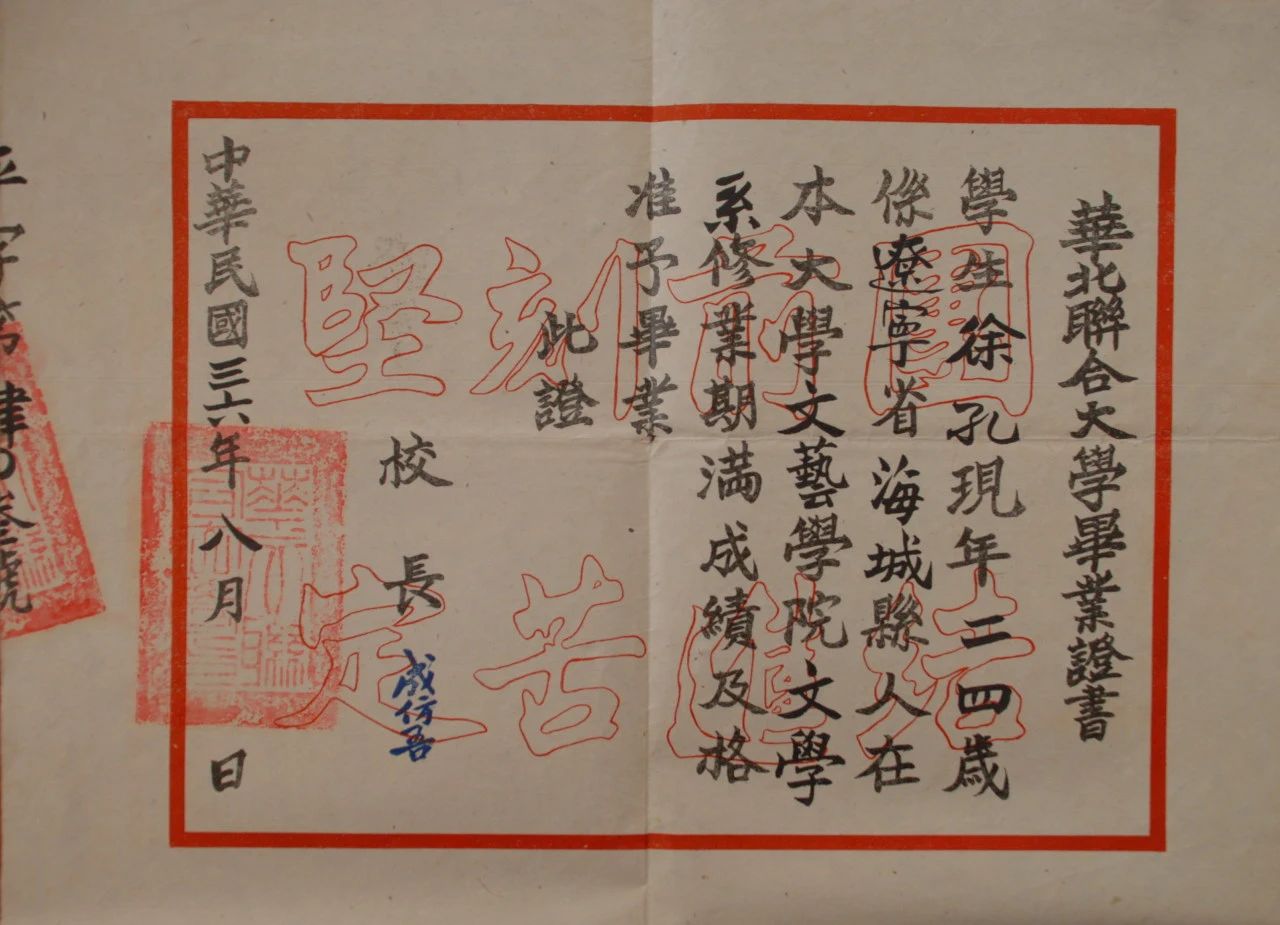 華北聯合大學畢業證書
學生徐孔現年二四歲
係遼寧省海城縣人在
本大學文藝學院文學
系修業期滿成績及格
准予畢業
此證
校長 成仿吾
中華民國三六年八月 日
團結
前進
刻苦
堅定
字第肆〇叁號